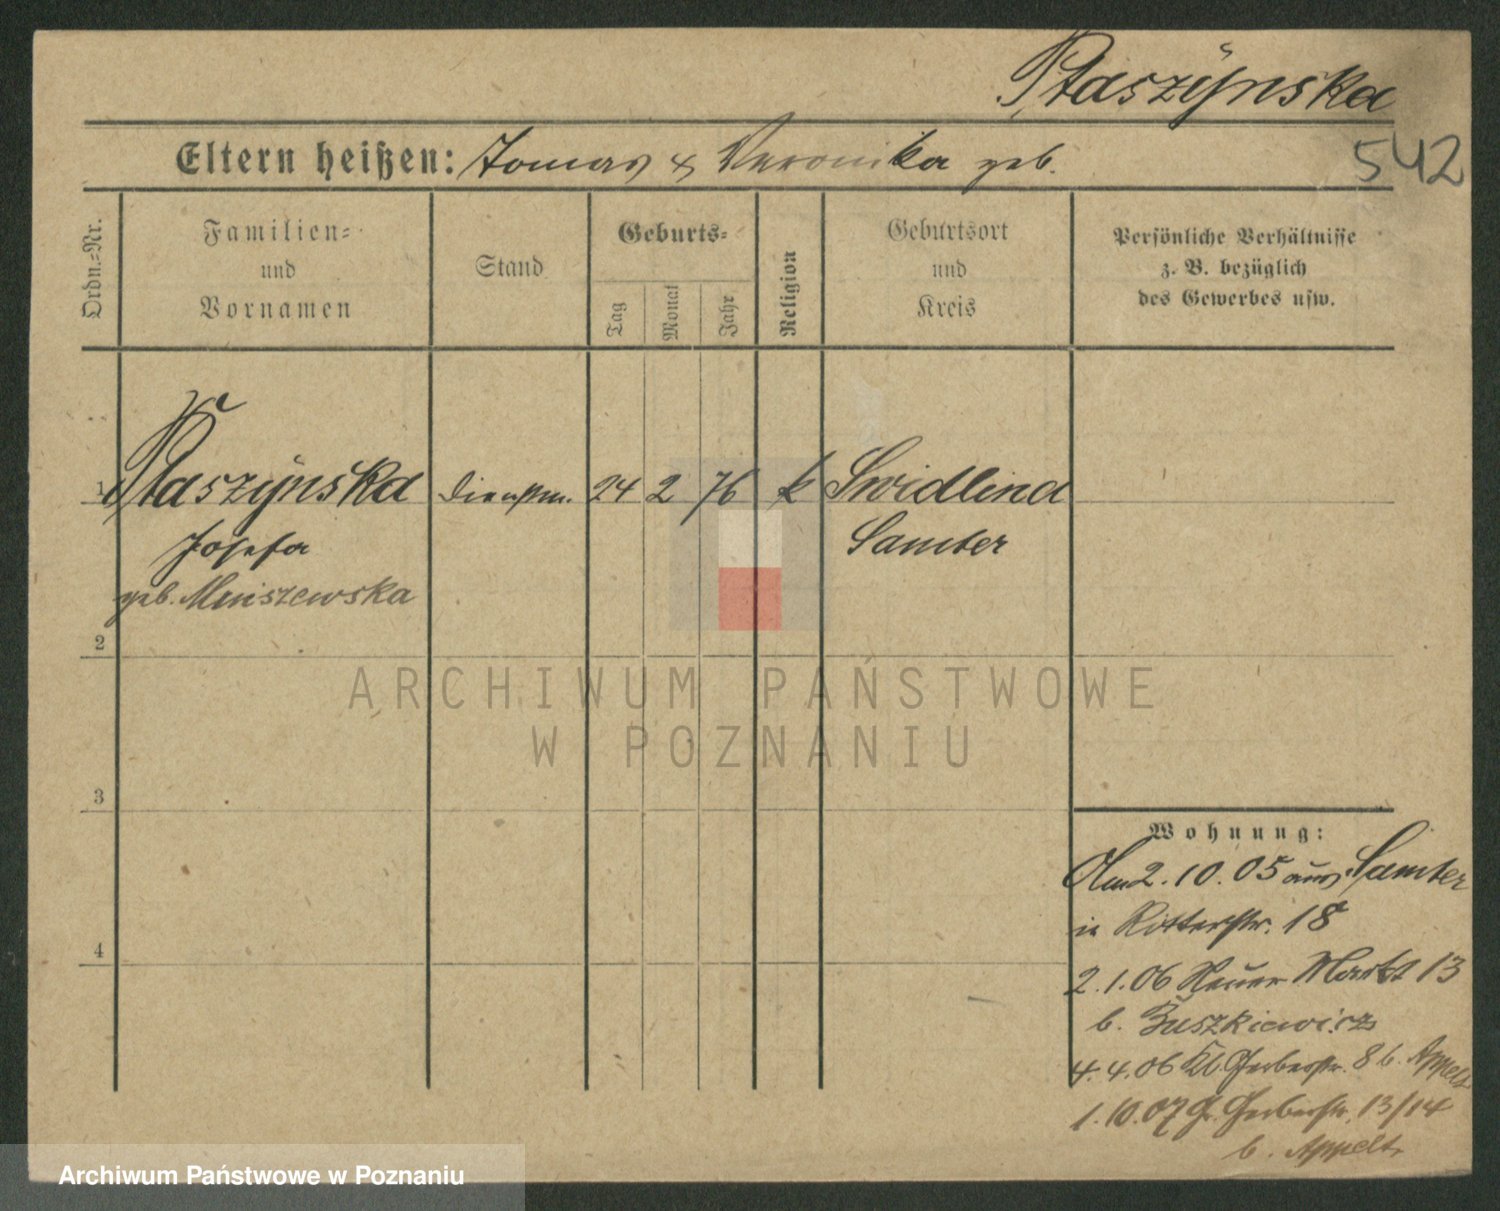 Ptaszynska
542
Eltern heißen: Tomas & Veronika geb.
Ordn.-Nr.
Familien- und Vornamen
Stand
Geburts-
Tag
Monat
Jahr
Religion
Geburtsort und Kreis
Persönliche Verhältnisse
z. B. bezüglich
des Gewerbes usw.
1 Ptaszynska Dienstm. 24 2 76 k Swidlina
Josefa Samter
geb.
2
3
4
ARCHIWUM PAŃSTWOWE
W POZNANIU
Wohnung:
Am 2.10.05 aus Samter
in Ritterstr. 18
2.1.06 Neuer Markt 13
b. Zuszkiewicz
4.4.06 Kl. Gerberstr. 8 b. Appelt
1.10.07 Gr. Gerberstr. 13/14
b. Appelt
Archiwum Państwowe w Poznaniu